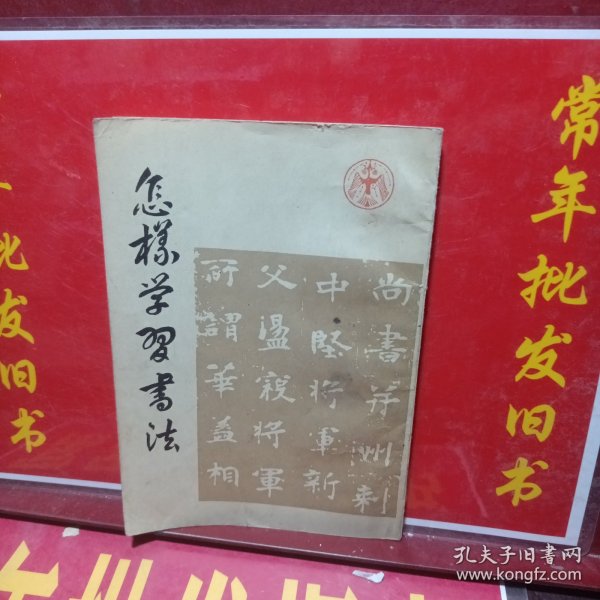 怎樣学習書法
尚書并州刺
中堅将軍新
父盪寇将軍
所謂華蓋相
常年批发旧书
批发旧书
孔夫子旧书网
www.kongfz.com